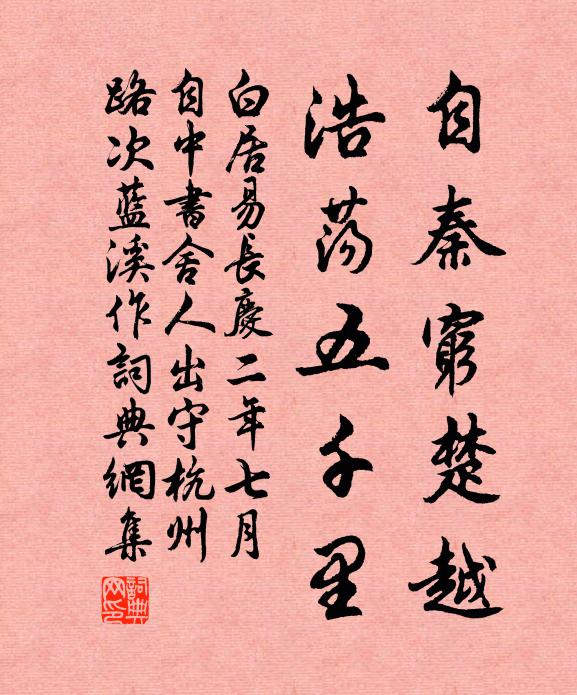 自秦窮楚越
浩蕩五千里
白居易長慶二年七月
自中書舍人出守杭州
路次藍溪作詞典網集
詞典網印